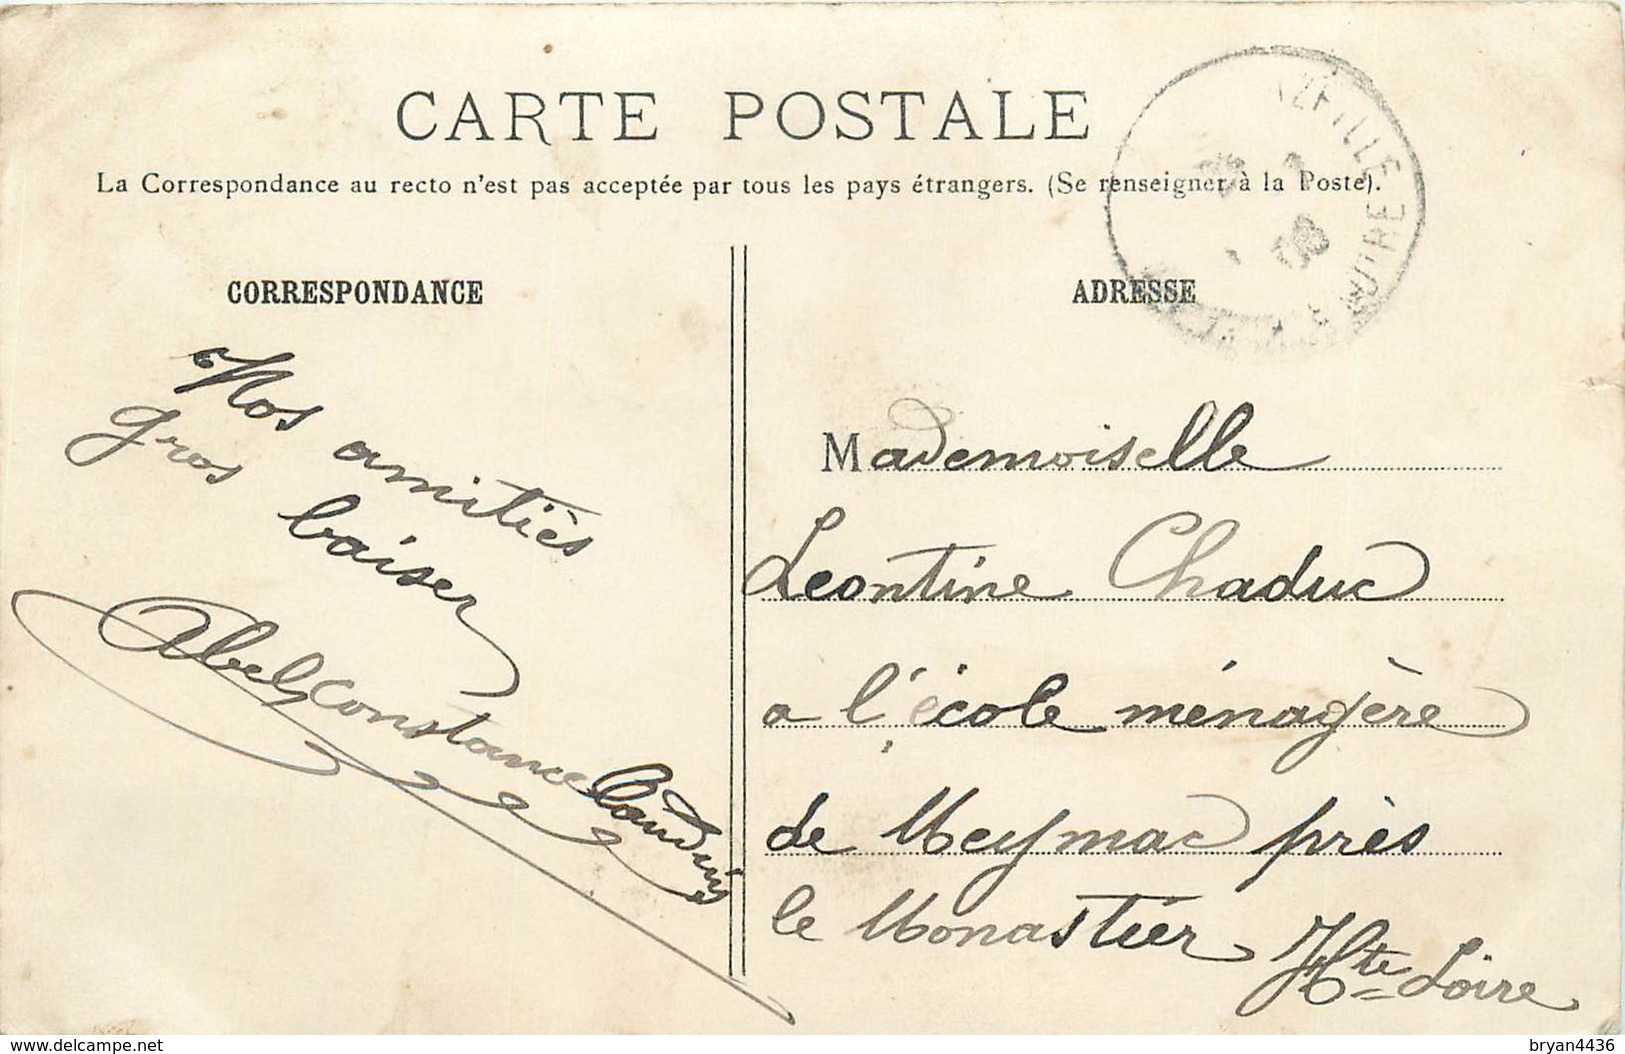 CARTE POSTALE
La Correspondance au recto n'est pas acceptée par tous les pays étrangers. (Se renseigner à la Poste).
CORRESPONDANCE
Nos amitiés
gros baiser
Abel Constance Claudius
ADRESSE
Mademoiselle
Leontine Chaduc
a l'école ménagère
de Meymac près
le Monastier Hte Loire
08
delcampe.net
bryan4436